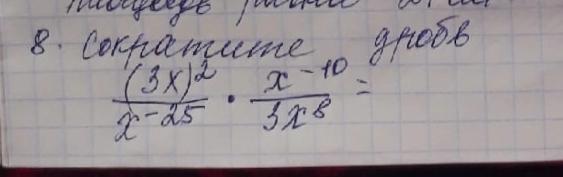 8. Сократите дробь
(3x)² / x⁻²⁵ · x⁻¹⁰ / 3x⁸ =